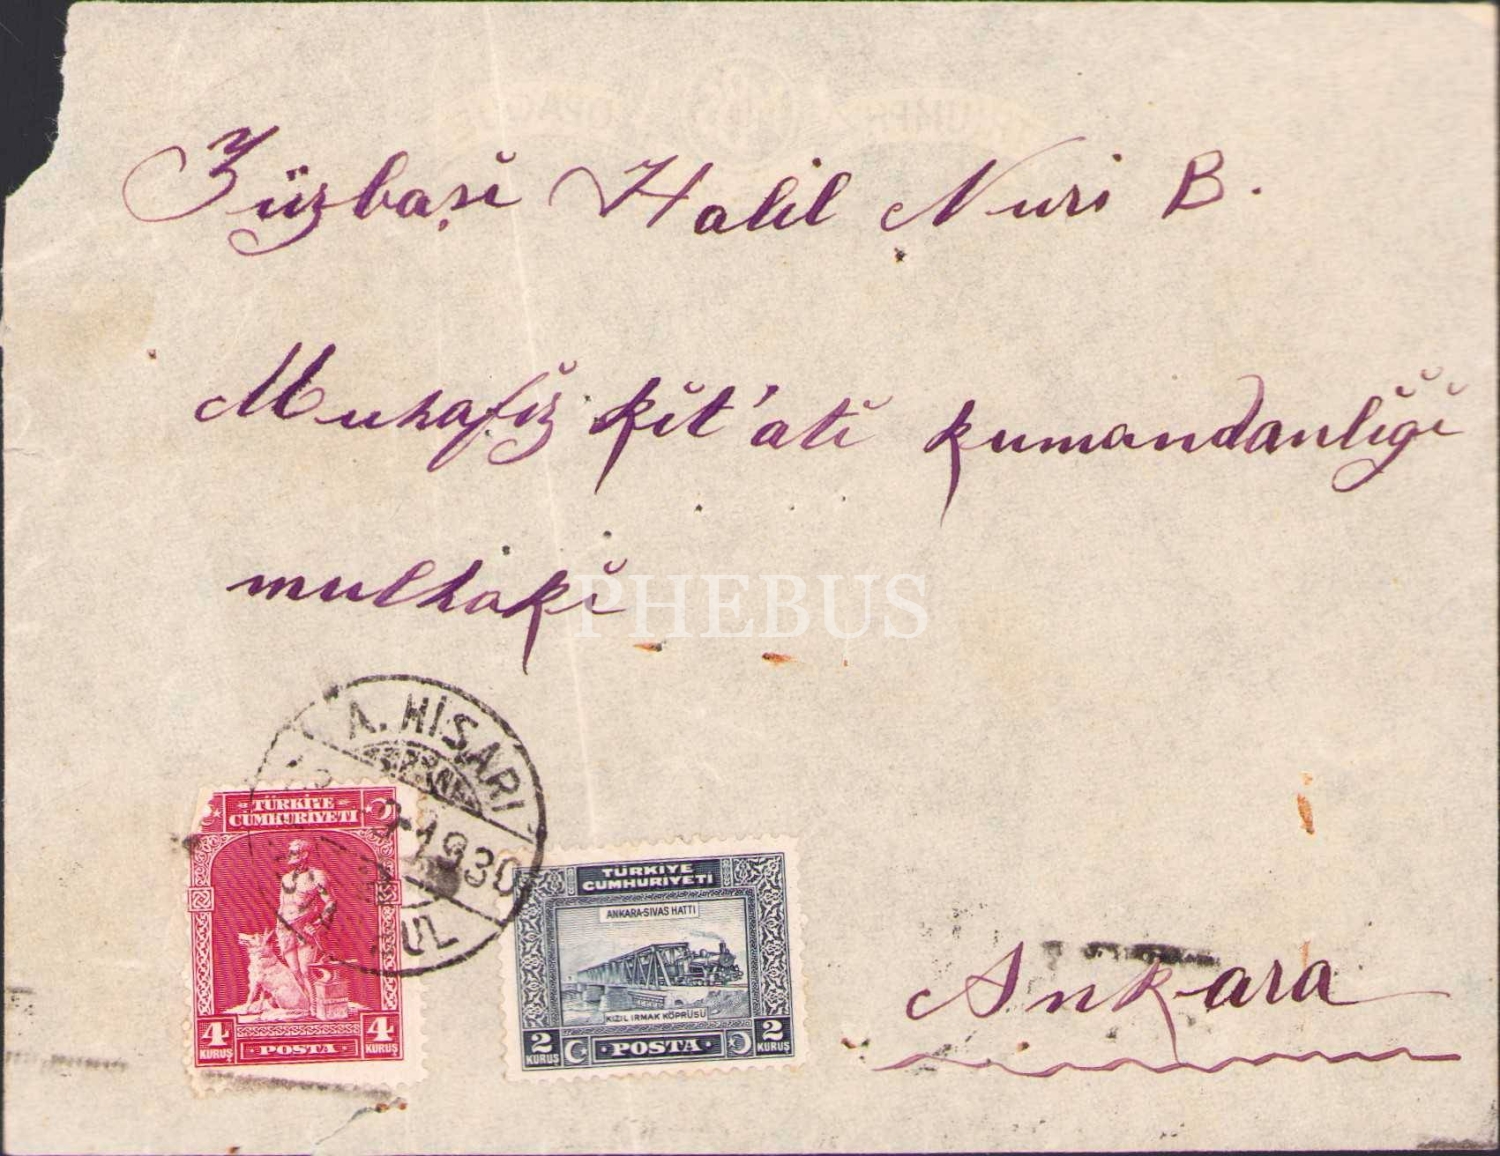 Yüzbaşi Halil Nuri B.
Muhafiz kit'ati kumandanliği
mulhaki
PHEBUS
A. HİSARI
9-1930
UL
TÜRKİYE
CUMHURİYETİ
4
KURUŞ
POSTA
4
KURUŞ
TÜRKİYE
CUMHURİYETİ
ANKARA-SIVAS HATTI
KIZIL IRMAK KÖPRÜSÜ
2
KURUŞ
POSTA
2
KURUŞ
Ankara